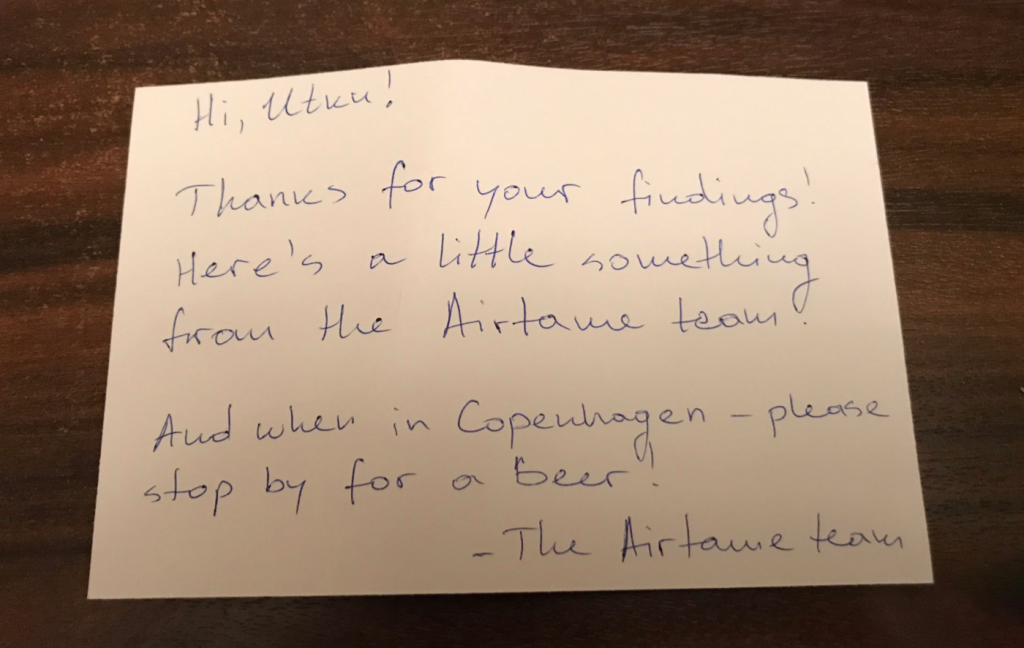 Hi, Utku!
Thanks for your findings!
Here's a little something
from the Airtame team!
And when in Copenhagen – please
stop by for a beer!
– The Airtame team